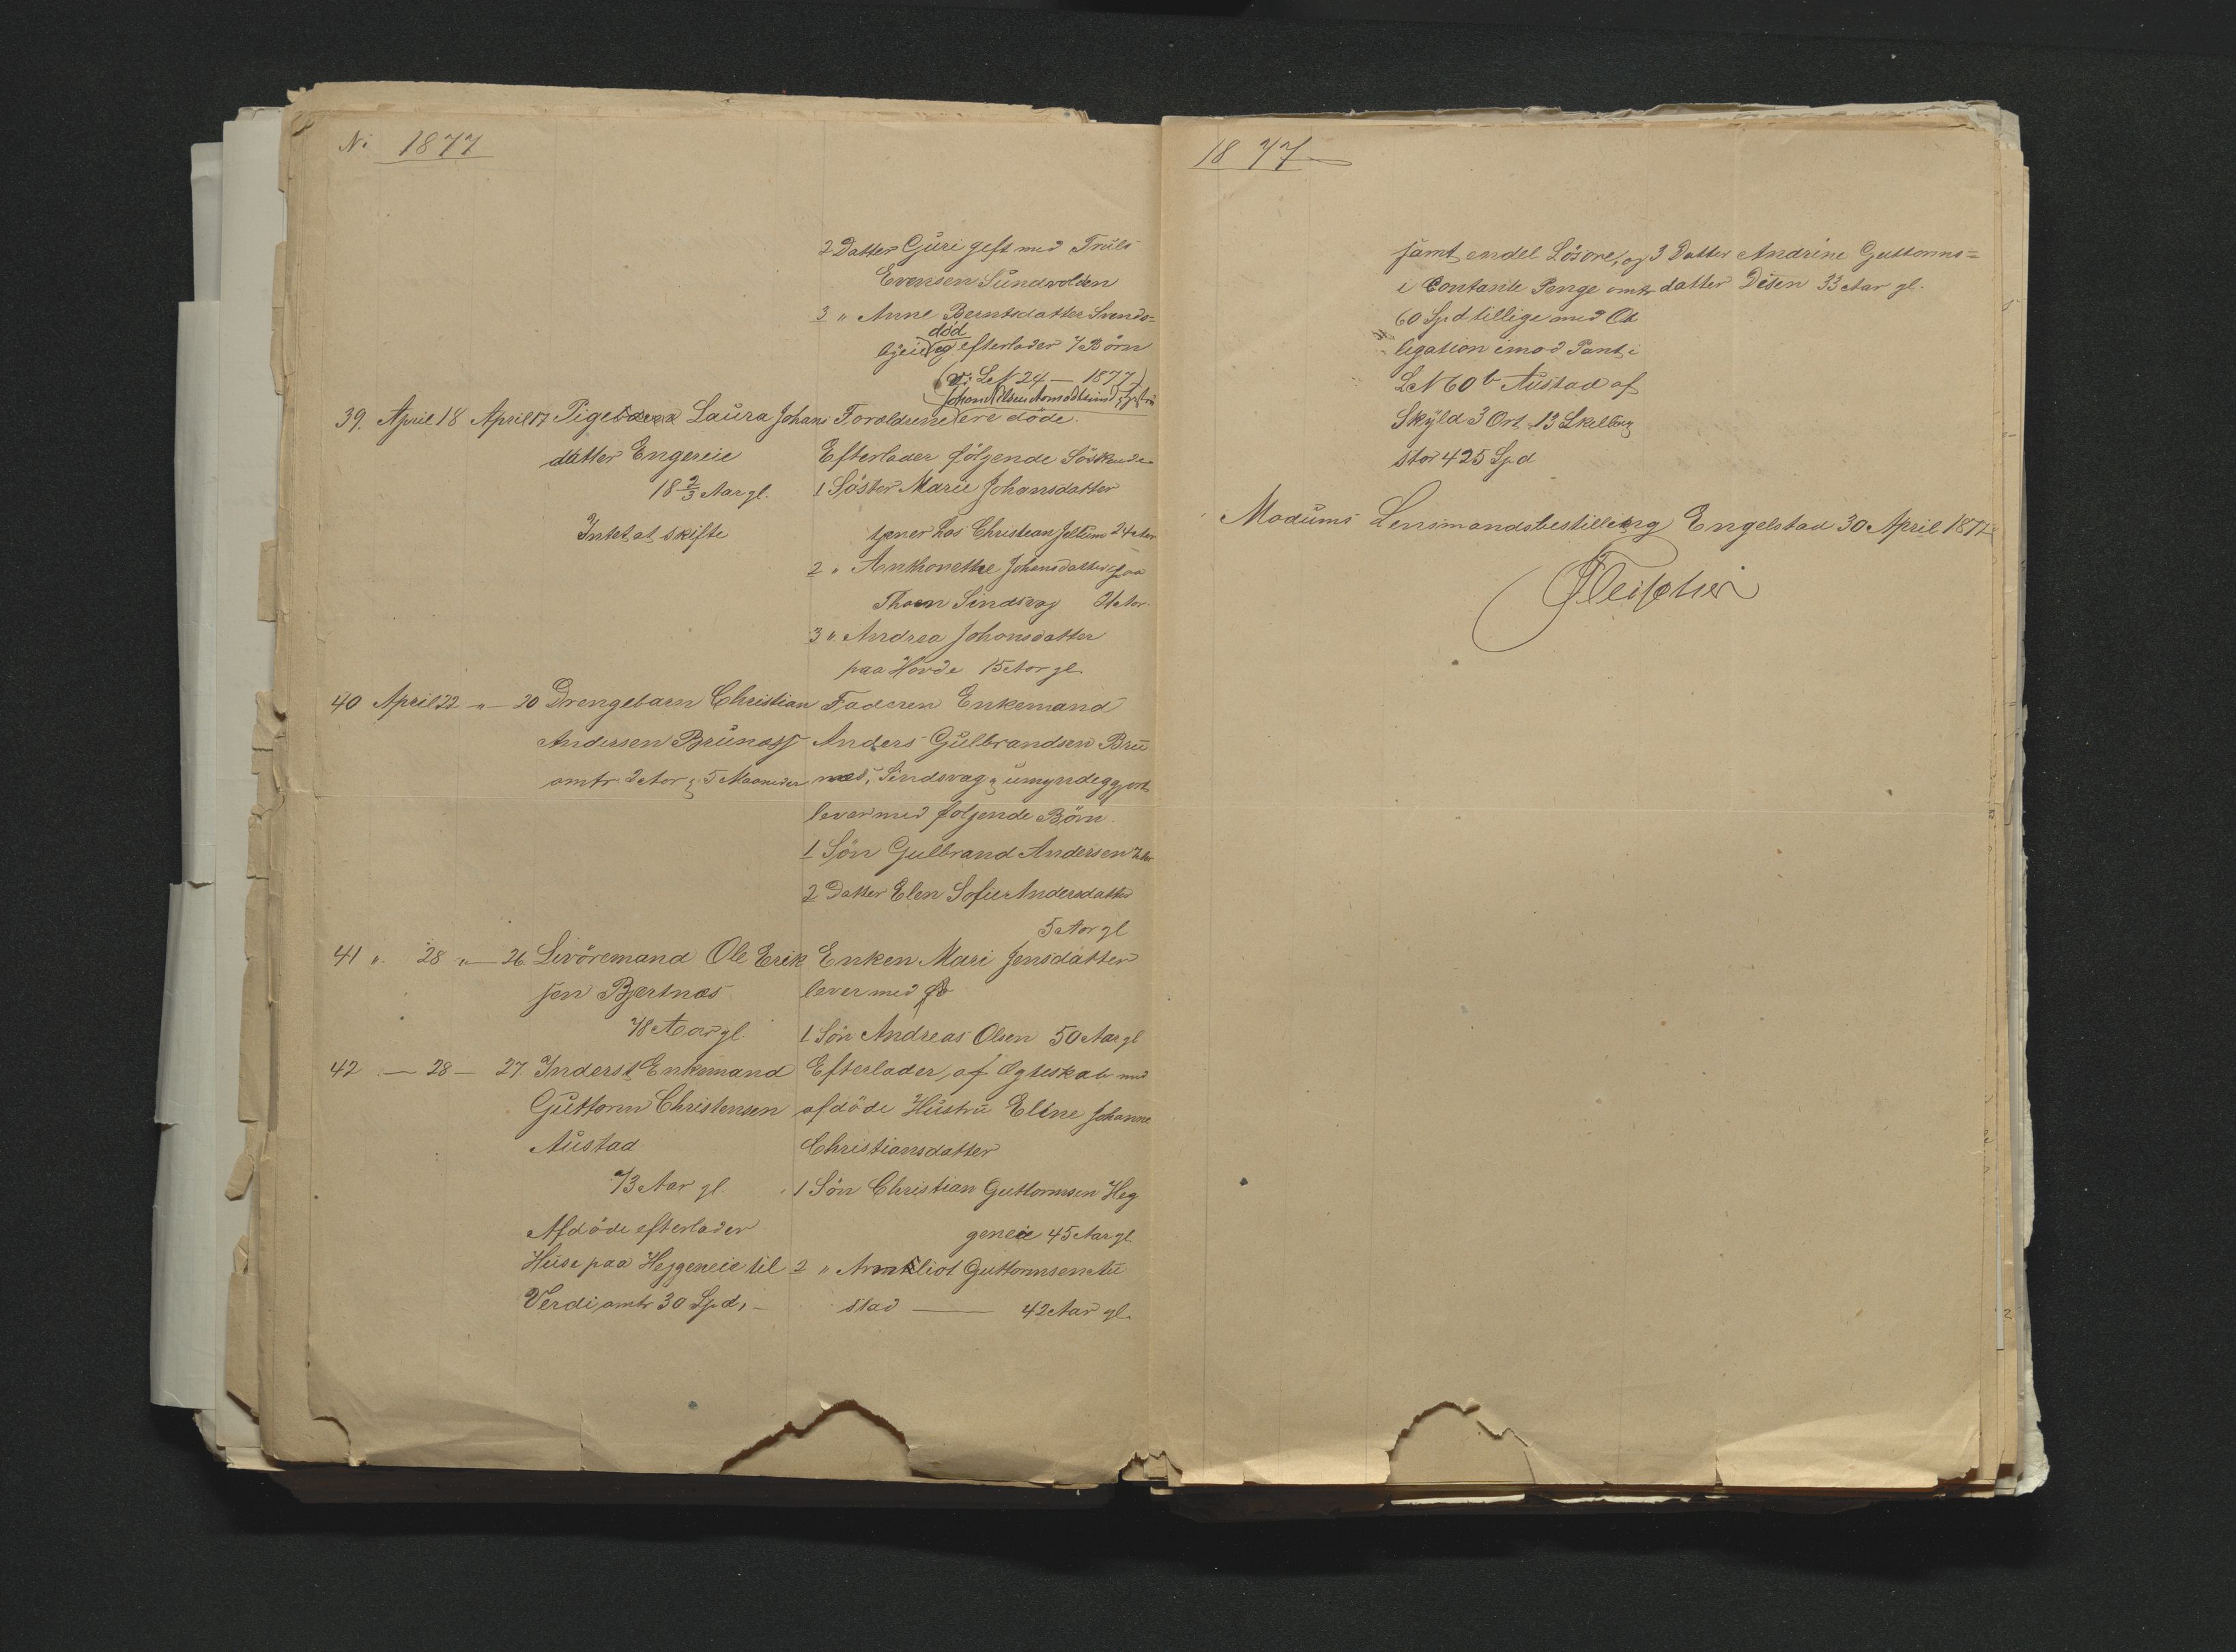 No 1877
2 Datter Guri gift med Truls
Evensen Sundvolden
3 " Anne Berntsdatter Svends=
død
byeie og efterlader 7 Børn
(v: L N 24 – 1877)
39. April 18 April 17 Pigebarn Laura Johans Forældrene Johan Olsen Aamodt ere døde.
datter Engereie Efterlader følgende Søskende
18 2/3 Aar gl. 1 Søster Marie Johansdatter
Intet at skifte tjener hos Christian Jellum 24 Aar
2 " Anthonette Johansdatter paa
Thoen Sindsvag
3 " Andrea Johansdatter
paa Hovde 15 Aar gl
40 April 22 " – 20 Drengebarn Christian Faderen Enkemand
Andersen Brunæs Anders Gulbrandsen Bru
omtr. 2 Aar & 5 Maaneder næs, Sindsvag & umyndiggjort
lever med følgende Børn.
1 Søn Gulbrand Andersen 7 Aar
2 Datter Elen Sofie Andersdatter
5 Aar gl
41 " 28 " – 26. Livøremand Ole Erik Enken Mari Jensdatter
sen Bjertnæs lever med
78 Aar gl. 1 Søn Andreas Olsen 50 Aar gl
42 – 28 – 27. Inderst Enkemand Efterlader af Ægteskab med
Guttorm Christensen afdøde Hustru Eline Johanne
Austad Christiansdatter
73 Aar gl. 1 Søn Christian Guttormsen Heg
Afdøde efterlader geneie 45 Aar gl
Huse paa Heggeneie til 2 " Guttormsen Au
Verdi omtr 30 Spd, – stad — 42 Aar gl.
1877
samt endel Løsøre, og 3 Datter Andrine Guttorms=
i Contante Penge omtr datter Disen 33 Aar gl.
60 Spd tillige med Ob
ligation imod Pant i
L N 60 b Austad af
Skyld 3 Ort 13 Skilling
stor 425 Spd
Modums Lensmandsbestilling Engelstad 30 April 1877